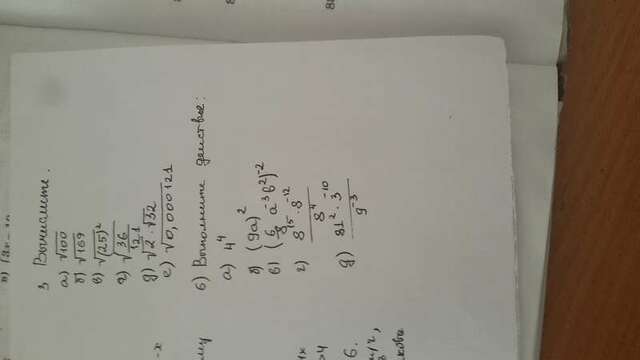 3 Вычислите.
а) √100
б) √169
в) √(25)²
г) √36/121
д) √2 · √32
е) √0,000121
6) Выполните действие:
а) 4⁴
б) (9a)²
в) (6/8 a⁻³b²)⁻²
г) 8¹⁵ · 8⁻¹² / 8⁴
д) 81² · 3⁻¹⁰ / 9⁻³
-x
ому
6.